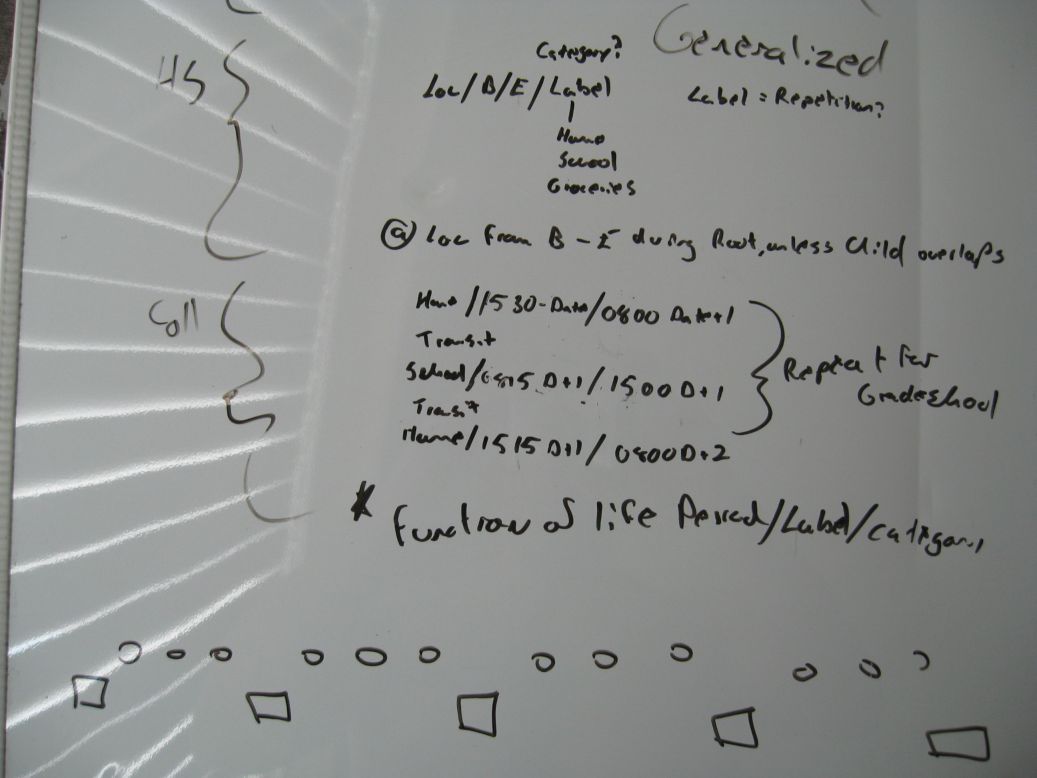 Generalized
Category?
HS
Loc/B/E/Label
Label = Repetition?
Home
School
Groceries
@ Loc from B-E during Root, unless Child overlaps
Coll
Home/1530-Date/0800 Date+1
Transit
School/0815 D+1/1500 D+1
Transit
Home/1515 D+1/0800 D+2
Repeat for
Gradeschool
* Function of life Period/Label/category